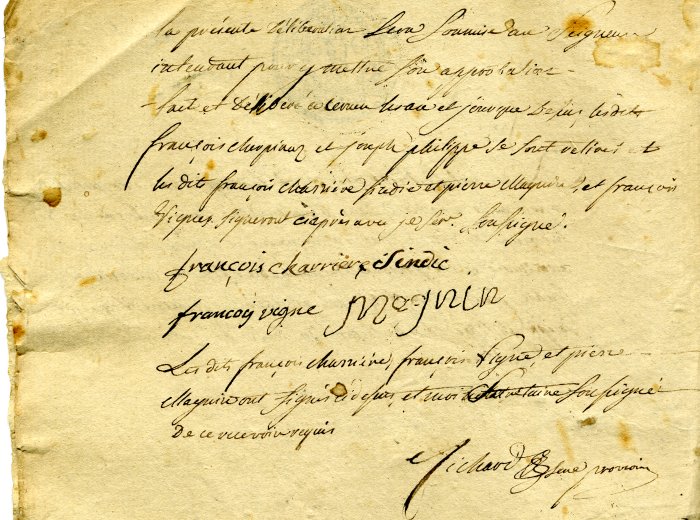 la présente délibération sera soumise au Seigneur
intendant pour y mettre son approbation
fait et délibéré à les an et jour que depuis, lesdits
françois et joseph philippe se sont retirés et
les dits françois charrière sindic et pierre Magnin, et françois
Vignes signeront ciaprès avec je soussigné.
françois charrière sindic
françois vigne Magnin
Les dits françois charrière, françois Vigne, et pierre
Magnin ont signés cidessus, et moi Secretaire soussigné
de ce recevoir requis
Richard